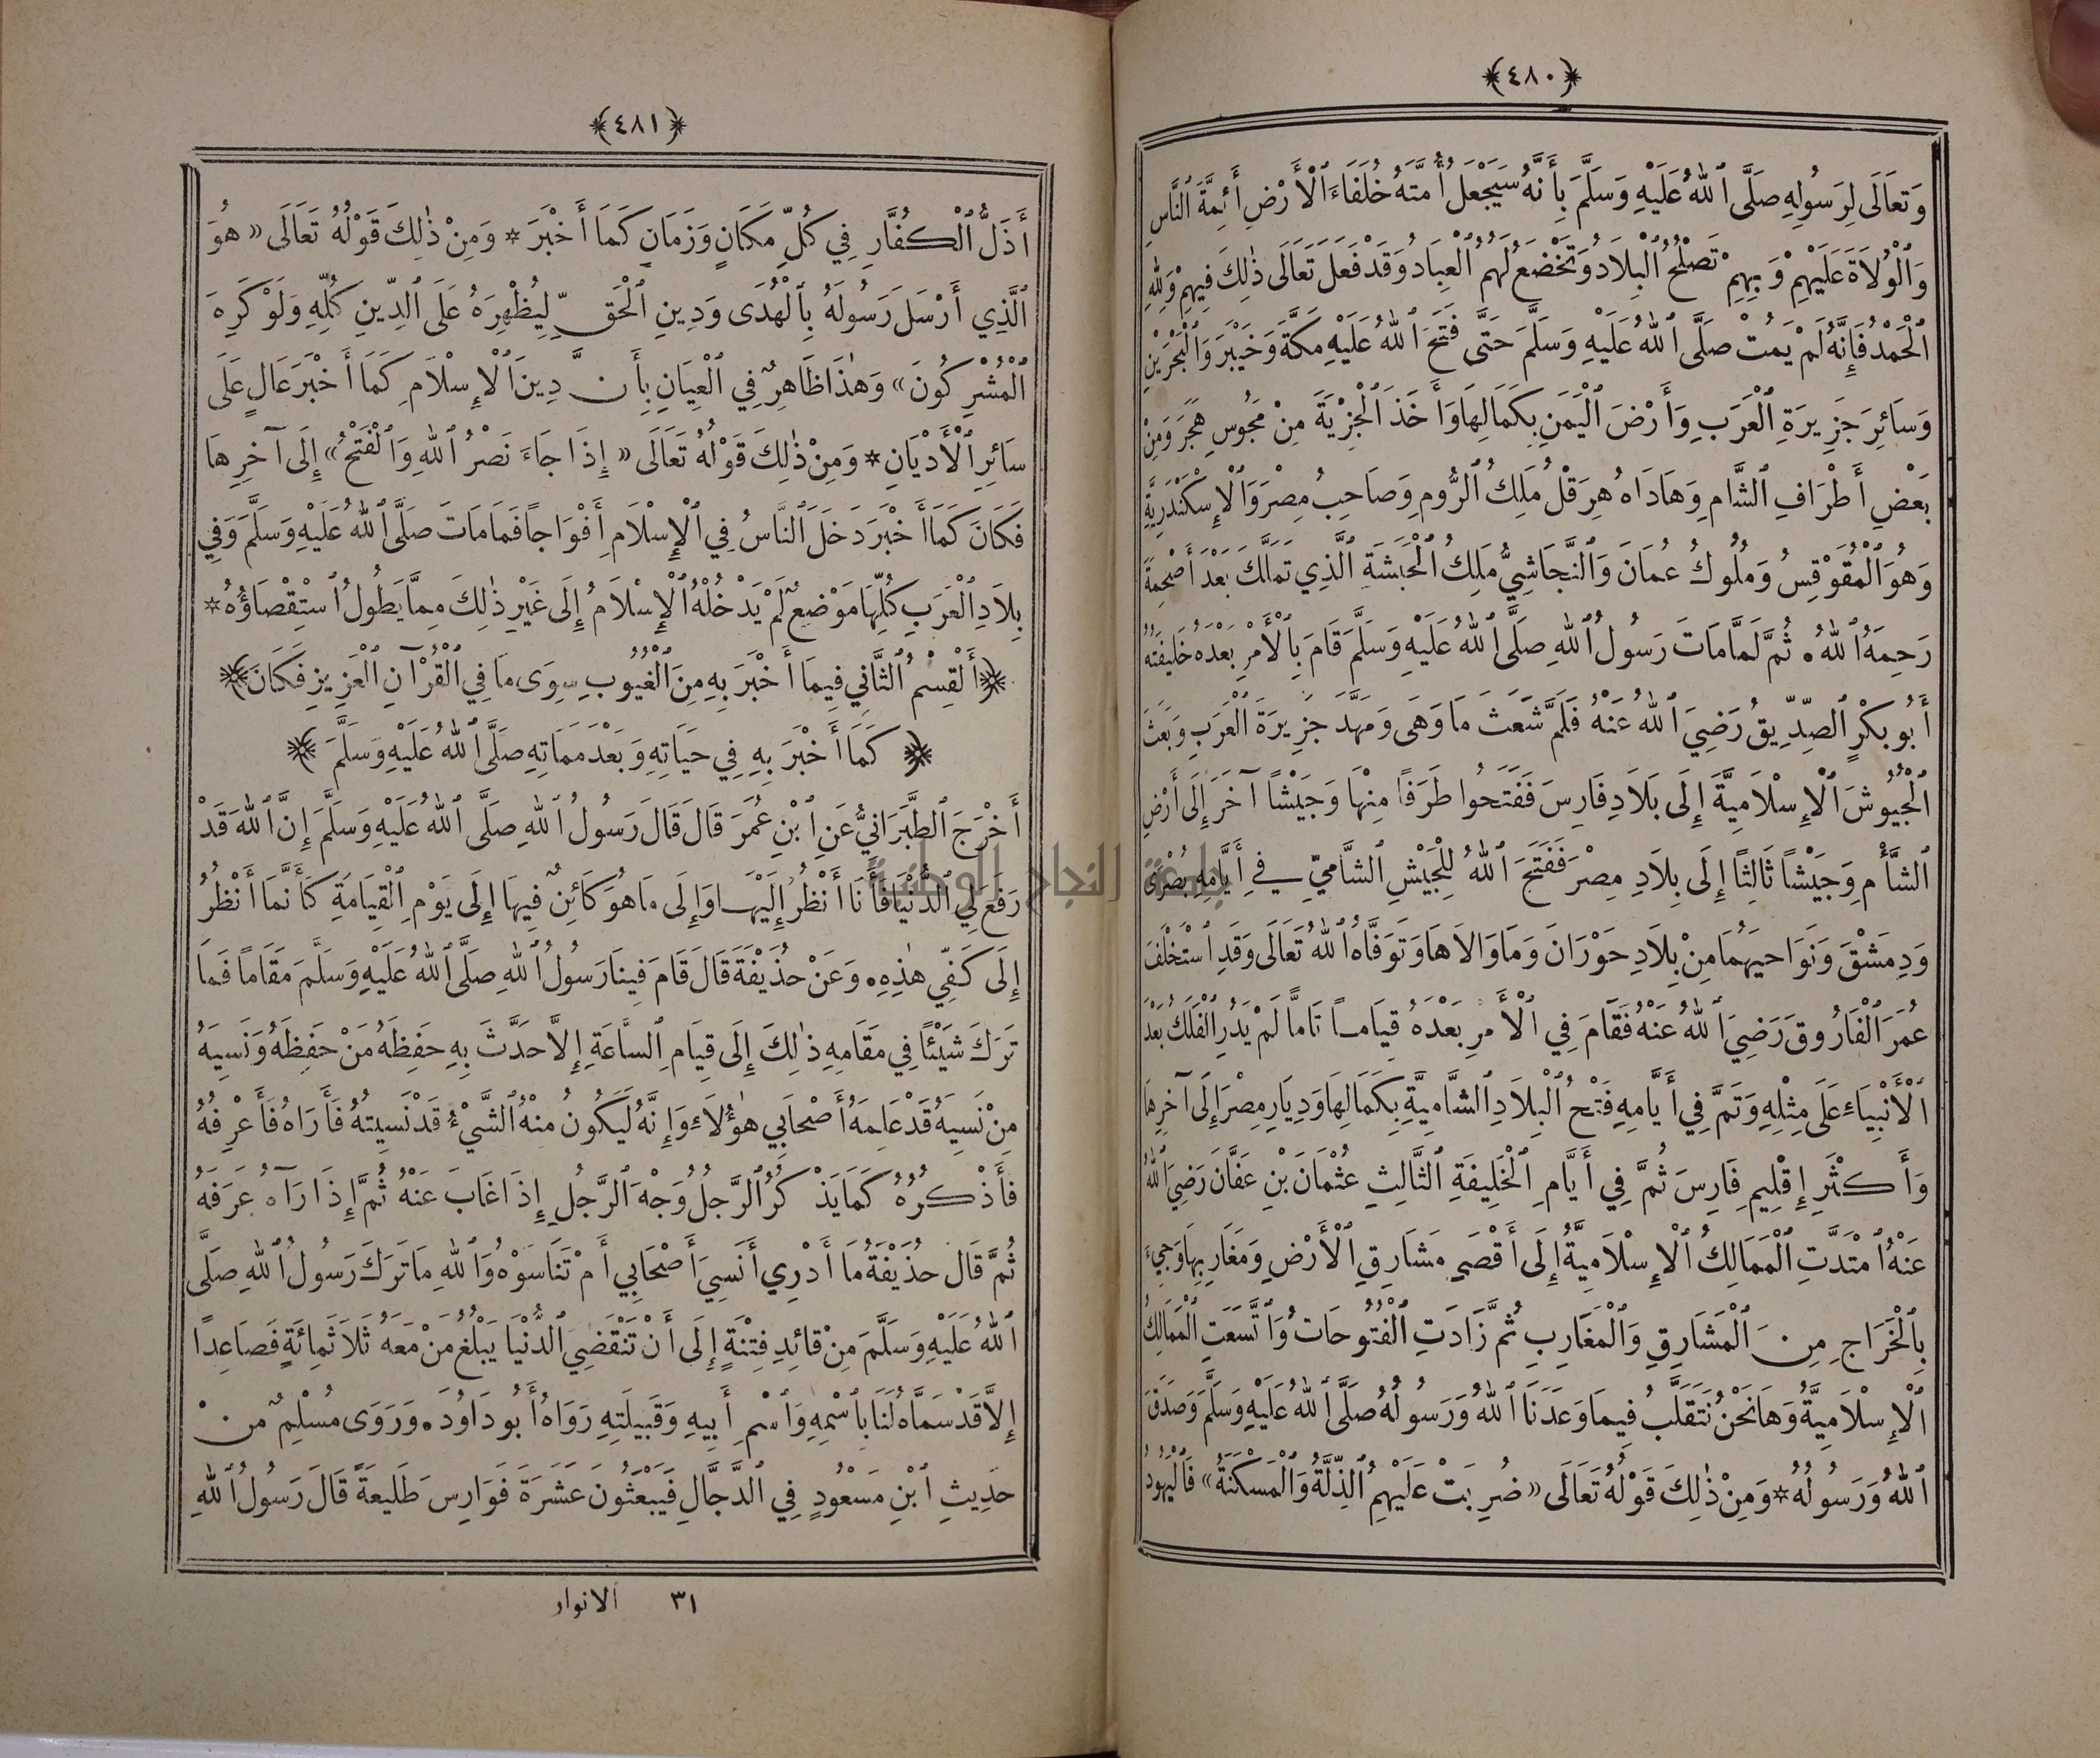 ﴿٤٨٠﴾
وَتَعَالَى لِرَسُولِهِ صَلَّى ٱللهُ عَلَيْهِ وَسَلَّمَ بِأَنَّهُ سَيَجْعَلُ أُمَّتَهُ خُلَفَاءَ ٱلْأَرْضِ أَئِمَّةَ ٱلنَّاسِ
وَٱلْوُلَاةَ عَلَيْهِمْ وَبِهِمْ تَصْلُحُ ٱلْبِلَادُ وَتَخْضَعُ لَهُمُ ٱلْعِبَادُ وَقَدْ فَعَلَ تَعَالَى ذٰلِكَ فِيهِمْ وَلِلهِ
ٱلْحَمْدُ فَإِنَّهُ لَمْ يَمُتْ صَلَّى ٱللهُ عَلَيْهِ وَسَلَّمَ حَتَّى فَتَحَ ٱللهُ عَلَيْهِ مَكَّةَ وَخَيْبَرَ وَٱلْبَحْرَيْنِ
وَسَائِرَ جَزِيرَةِ ٱلْعَرَبِ وَأَرْضَ ٱلْيَمَنِ بِكَمَالِهَا وَأَخَذَ ٱلْجِزْيَةَ مِنْ مَجُوسِ هَجَرَ وَمِنْ
بَعْضِ أَطْرَافِ ٱلشَّامِ وَهَادَاهُ هِرَقْلُ مَلِكُ ٱلرُّومِ وَصَاحِبُ مِصْرَ وَٱلْإِسْكَنْدَرِيَّةِ
وَهُوَ ٱلْمُقَوْقِسُ وَمُلُوكُ عُمَانَ وَٱلنَّجَاشِيُّ مَلِكُ ٱلْحَبَشَةِ ٱلَّذِي تَمَلَّكَ بَعْدَ أَصْحَمَةَ
رَحِمَهُ ٱللهُ ۰ ثُمَّ لَمَّا مَاتَ رَسُولُ ٱللهِ صَلَّى ٱللهُ عَلَيْهِ وَسَلَّمَ قَامَ بِٱلْأَمْرِ بَعْدَهُ خَلِيفَتُهُ
أَبُو بَكْرٍ ٱلصِّدِّيقُ رَضِيَ ٱللهُ عَنْهُ فَلَمَّ شَعَثَ مَا وَهَى وَمَهَّدَ جَزِيرَةَ ٱلْعَرَبِ وَبَعَثَ
ٱلْجُيُوشَ ٱلْإِسْلَامِيَّةَ إِلَى بِلَادِ فَارِسَ فَفَتَحُوا طَرَفًا مِنْهَا وَجَيْشًا آخَرَ إِلَى أَرْضِ
ٱلشَّأْمِ وَجَيْشًا ثَالِثًا إِلَى بِلَادِ مِصْرَ فَفَتَحَ ٱللهُ لِلْجَيْشِ ٱلشَّامِيِّ فِي أَيَّامِهِ بُصْرَى
وَدِمَشْقَ وَنَوَاحِيَهُمَا مِنْ بِلَادِ حَوْرَانَ وَمَا وَالَاهَا وَتَوَفَّاهُ ٱللهُ تَعَالَى وَقَدِ ٱسْتَخْلَفَ
عُمَرَ ٱلْفَارُوقَ رَضِيَ ٱللهُ عَنْهُ فَقَامَ فِي ٱلْأَمْرِ بَعْدَهُ قِيَامًا تَامًّا لَمْ يَدُرِ ٱلْفَلَكُ بَعْدَ
ٱلْأَنْبِيَاءِ عَلَى مِثْلِهِ وَتَمَّ فِي أَيَّامِهِ فَتْحُ ٱلْبِلَادِ ٱلشَّامِيَّةِ بِكَمَالِهَا وَدِيَارِ مِصْرَ إِلَى آخِرِهَا
وَأَكْثَرِ إِقْلِيمِ فَارِسَ ثُمَّ فِي أَيَّامِ ٱلْخَلِيفَةِ ٱلثَّالِثِ عُثْمَانَ بْنِ عَفَّانَ رَضِيَ ٱللهُ
عَنْهُ ٱمْتَدَّتِ ٱلْمَمَالِكُ ٱلْإِسْلَامِيَّةُ إِلَى أَقْصَى مَشَارِقِ ٱلْأَرْضِ وَمَغَارِبِهَا وَجِيءَ
بِٱلْخَرَاجِ مِنَ ٱلْمَشَارِقِ وَٱلْمَغَارِبِ ثُمَّ زَادَتِ ٱلْفُتُوحَاتُ وَٱتَّسَعَتِ ٱلْمَمَالِكُ
ٱلْإِسْلَامِيَّةُ وَهَا نَحْنُ نَتَقَلَّبُ فِيمَا وَعَدَنَا ٱللهُ وَرَسُولُهُ صَلَّى ٱللهُ عَلَيْهِ وَسَلَّمَ وَصَدَقَ
ٱللهُ وَرَسُولُهُ * وَمِنْ ذٰلِكَ قَوْلُهُ تَعَالَى « ضُرِبَتْ عَلَيْهِمُ ٱلذِّلَّةُ وَٱلْمَسْكَنَةُ » فَٱلْيَهُودُ
﴿٤٨١﴾
أَذَلُّ ٱلْكُفَّارِ فِي كُلِّ مَكَانٍ وَزَمَانٍ كَمَا أَخْبَرَ * وَمِنْ ذٰلِكَ قَوْلُهُ تَعَالَى « هُوَ
ٱلَّذِي أَرْسَلَ رَسُولَهُ بِٱلْهُدَى وَدِينِ ٱلْحَقِّ لِيُظْهِرَهُ عَلَى ٱلدِّينِ كُلِّهِ وَلَوْ كَرِهَ
ٱلْمُشْرِكُونَ » وَهٰذَا ظَاهِرٌ فِي ٱلْعِيَانِ بِأَنَّ دِينَ ٱلْإِسْلَامِ كَمَا أَخْبَرَ عَالٍ عَلَى
سَائِرِ ٱلْأَدْيَانِ * وَمِنْ ذٰلِكَ قَوْلُهُ تَعَالَى « إِذَا جَاءَ نَصْرُ ٱللهِ وَٱلْفَتْحُ » إِلَى آخِرِهَا
فَكَانَ كَمَا أَخْبَرَ دَخَلَ ٱلنَّاسُ فِي ٱلْإِسْلَامِ أَفْوَاجًا فَمَا مَاتَ صَلَّى ٱللهُ عَلَيْهِ وَسَلَّمَ وَفِي
بِلَادِ ٱلْعَرَبِ كُلِّهَا مَوْضِعٌ لَمْ يَدْخُلْهُ ٱلْإِسْلَامُ إِلَى غَيْرِ ذٰلِكَ مِمَّا يَطُولُ ٱسْتِقْصَاؤُهُ *
﴿ أَلْقِسْمُ ٱلثَّانِي فِيمَا أَخْبَرَ بِهِ مِنَ ٱلْغُيُوبِ سِوَى مَا فِي ٱلْقُرْآنِ ٱلْعَزِيزِ فَكَانَ ﴾
﴿ كَمَا أَخْبَرَ بِهِ فِي حَيَاتِهِ وَبَعْدَ مَمَاتِهِ صَلَّى ٱللهُ عَلَيْهِ وَسَلَّمَ ﴾
أَخْرَجَ ٱلطَّبَرَانِيُّ عَنِ ٱبْنِ عُمَرَ قَالَ قَالَ رَسُولُ ٱللهِ صَلَّى ٱللهُ عَلَيْهِ وَسَلَّمَ إِنَّ ٱللهَ قَدْ
رَفَعَ لِيَ ٱلدُّنْيَا فَأَنَا أَنْظُرُ إِلَيْهَا وَإِلَى مَا هُوَ كَائِنٌ فِيهَا إِلَى يَوْمِ ٱلْقِيَامَةِ كَأَنَّمَا أَنْظُرُ
إِلَى كَفِّي هٰذِهِ ۰ وَعَنْ حُذَيْفَةَ قَالَ قَامَ فِينَا رَسُولُ ٱللهِ صَلَّى ٱللهُ عَلَيْهِ وَسَلَّمَ مَقَامًا فَمَا
تَرَكَ شَيْئًا فِي مَقَامِهِ ذٰلِكَ إِلَى قِيَامِ ٱلسَّاعَةِ إِلَّا حَدَّثَ بِهِ حَفِظَهُ مَنْ حَفِظَهُ وَنَسِيَهُ
مِنْ نَسِيَهُ قَدْ عَلِمَهُ أَصْحَابِي هٰؤُلَاءِ وَإِنَّهُ لَيَكُونُ مِنْهُ ٱلشَّيْءُ قَدْ نَسِيتُهُ فَأَرَاهُ فَأَعْرِفُهُ
فَأَذْكُرُهُ كَمَا يَذْكُرُ ٱلرَّجُلُ وَجْهَ ٱلرَّجُلِ إِذَا غَابَ عَنْهُ ثُمَّ إِذَا رَآهُ عَرَفَهُ
ثُمَّ قَالَ حُذَيْفَةُ مَا أَدْرِي أَنَسِيَ أَصْحَابِي أَمْ تَنَاسَوْهُ وَٱللهِ مَا تَرَكَ رَسُولُ ٱللهِ صَلَّى
ٱللهُ عَلَيْهِ وَسَلَّمَ مِنْ قَائِدِ فِتْنَةٍ إِلَى أَنْ تَنْقَضِيَ ٱلدُّنْيَا يَبْلُغُ مَنْ مَعَهُ ثَلَاثَمِائَةٍ فَصَاعِدًا
إِلَّا قَدْ سَمَّاهُ لَنَا بِٱسْمِهِ وَٱسْمِ أَبِيهِ وَقَبِيلَتِهِ رَوَاهُ أَبُو دَاوُدَ ۰ وَرَوَى مُسْلِمٌ مِنْ
حَدِيثِ ٱبْنِ مَسْعُودٍ فِي ٱلدَّجَّالِ فَيَبْعَثُونَ عَشَرَةَ فَوَارِسَ طَلِيعَةً قَالَ رَسُولُ ٱللهِ
٣١ الانوار
جامعة النجاح الوطنية